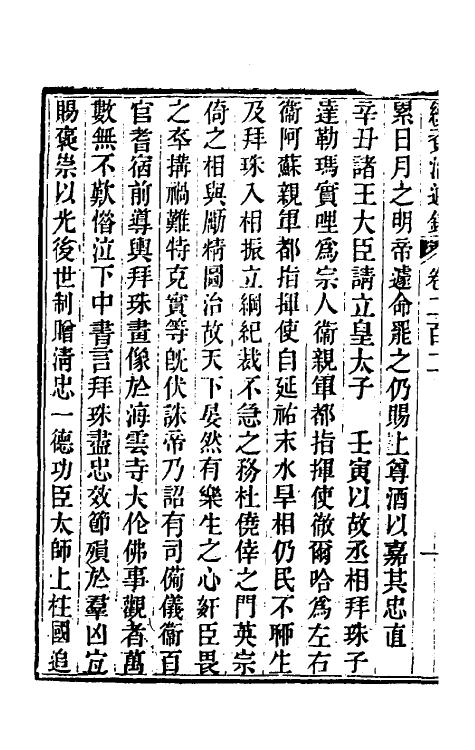 續資治通鑑 卷二百二
累日月之明帝遽命罷之仍賜上尊酒以嘉其忠直
辛丑諸王大臣請立皇太子 壬寅以故丞相拜珠子
達勒瑪實哩爲宗人衞親軍都指揮使徹爾哈爲左右
衞阿蘇親軍都指揮使自延祐末水旱相仍民不聊生
及拜珠入相振立綱紀裁不急之務杜僥倖之門英宗
倚之相與勵精圖治故天下晏然有樂生之心奸臣畏
之卒搆禍難特克實等旣伏誅帝乃詔有司備儀衞百
官耆宿前導輿拜珠畫像於海雲寺大作佛事觀者萬
數無不歎惜泣下中書言拜珠盡忠效節殞於羣凶宜
賜褒崇以光後世制贈淸忠一德功臣太師上柱國追